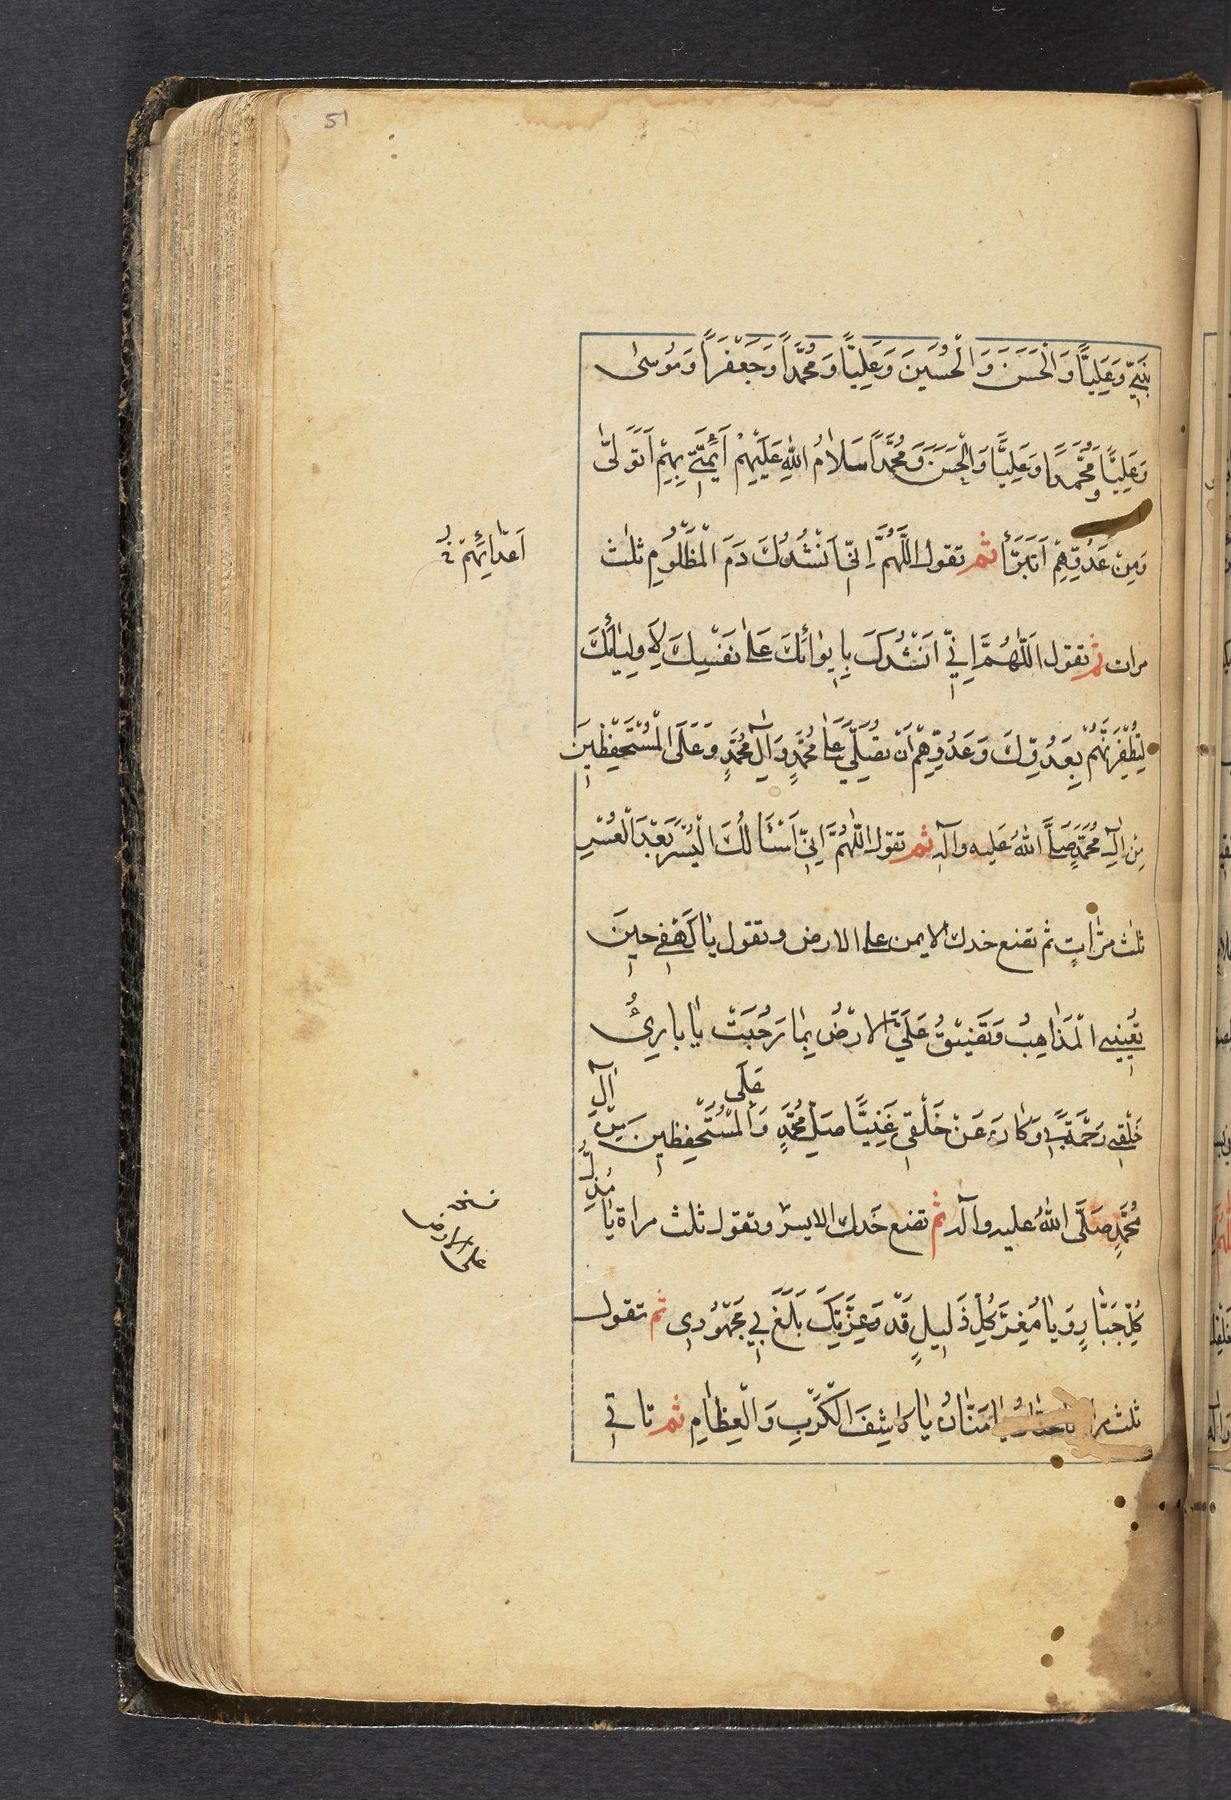 51
نَبِيّي وَعَلِيًّا وَالْحَسَنَ وَالْحُسَيْنَ وَعَلِيًّا وَمُحَمَّدًا وَجَعْفَرًا وَمُوسٰى
وَعَلِيًّا وَمُحَمَّدًا وَعَلِيًّا وَالْحَسَنَ وَمُحَمَّدًا سَلَامُ اللهِ عَلَيْهِمْ اَئِمَّتي بِهِمْ اَتَوَلّٰى
وَمِنْ عَدُوِّهِمْ اَتَبَرَّأُ ثم تقول اللَّهُمَّ اِنّي اَنْشُدُكَ دَمَ الْمَظْلُومِ ثلٰث
اَعْدائِهِمْ خ
مرات ثم تقول اَللّٰهُمَّ اِنّي اَنْشُدُكَ بِاِيوائِكَ عَلٰى نَفْسِكَ لِاَوْلِيٰائِكَ
لِتُظْفِرَنَّهُمْ بِعَدُوِّكَ وَعَدُوِّهِمْ اَنْ تُصَلِّيَ عَلٰى مُحَمَّدٍ وَآلِ مُحَمَّدٍ وَعَلَى الْمُسْتَحْفِظينَ
مِنْ آلِ مُحَمَّدٍ صَلَّى اللهُ عَليه وآلِه ثم تقول اللّٰهُمَّ اِنّي اَسْئَالُكَ الْيُسْرَ بَعْدَ الْعُسْرِ
ثلث مَرّٰاتٍ ثم تضع خدك الايمن على الارض وتقول يٰا كَهْفي حينَ
تُعْييني الْمَذٰاهِبُ وَتَضيقُ عَلَيَّ الْارْضُ بِمٰا رَحُبَتْ يٰا بارِئُ
خَلْقي رَحْمَةً بي وَكٰانَ عَنْ خَلْقي غَنِيًّا صَلِّ عَلٰى مُحَمَّدٍ وَالْمُسْتَحْفِظينَ مِنْ آلِ
مُحَمَّدٍ صَلَّى اللهُ عليه وآله ثم تضع خَدك الايسر وتقول ثلث مراة يٰا مُذِلَّ
كُلِّ جَبّٰارٍ وَيٰا مُعِزَّ كُلِّ ذَليلٍ قَدْ وَعِزَّتِكَ بَلَغَ بي مَجْهُودي ثم تقول
ثلث مرات يٰا حَنّٰانُ يٰا مَنّٰانُ يٰا كٰاشِفَ الْكَرْبِ وَالْعِظٰامِ ثم تاتي